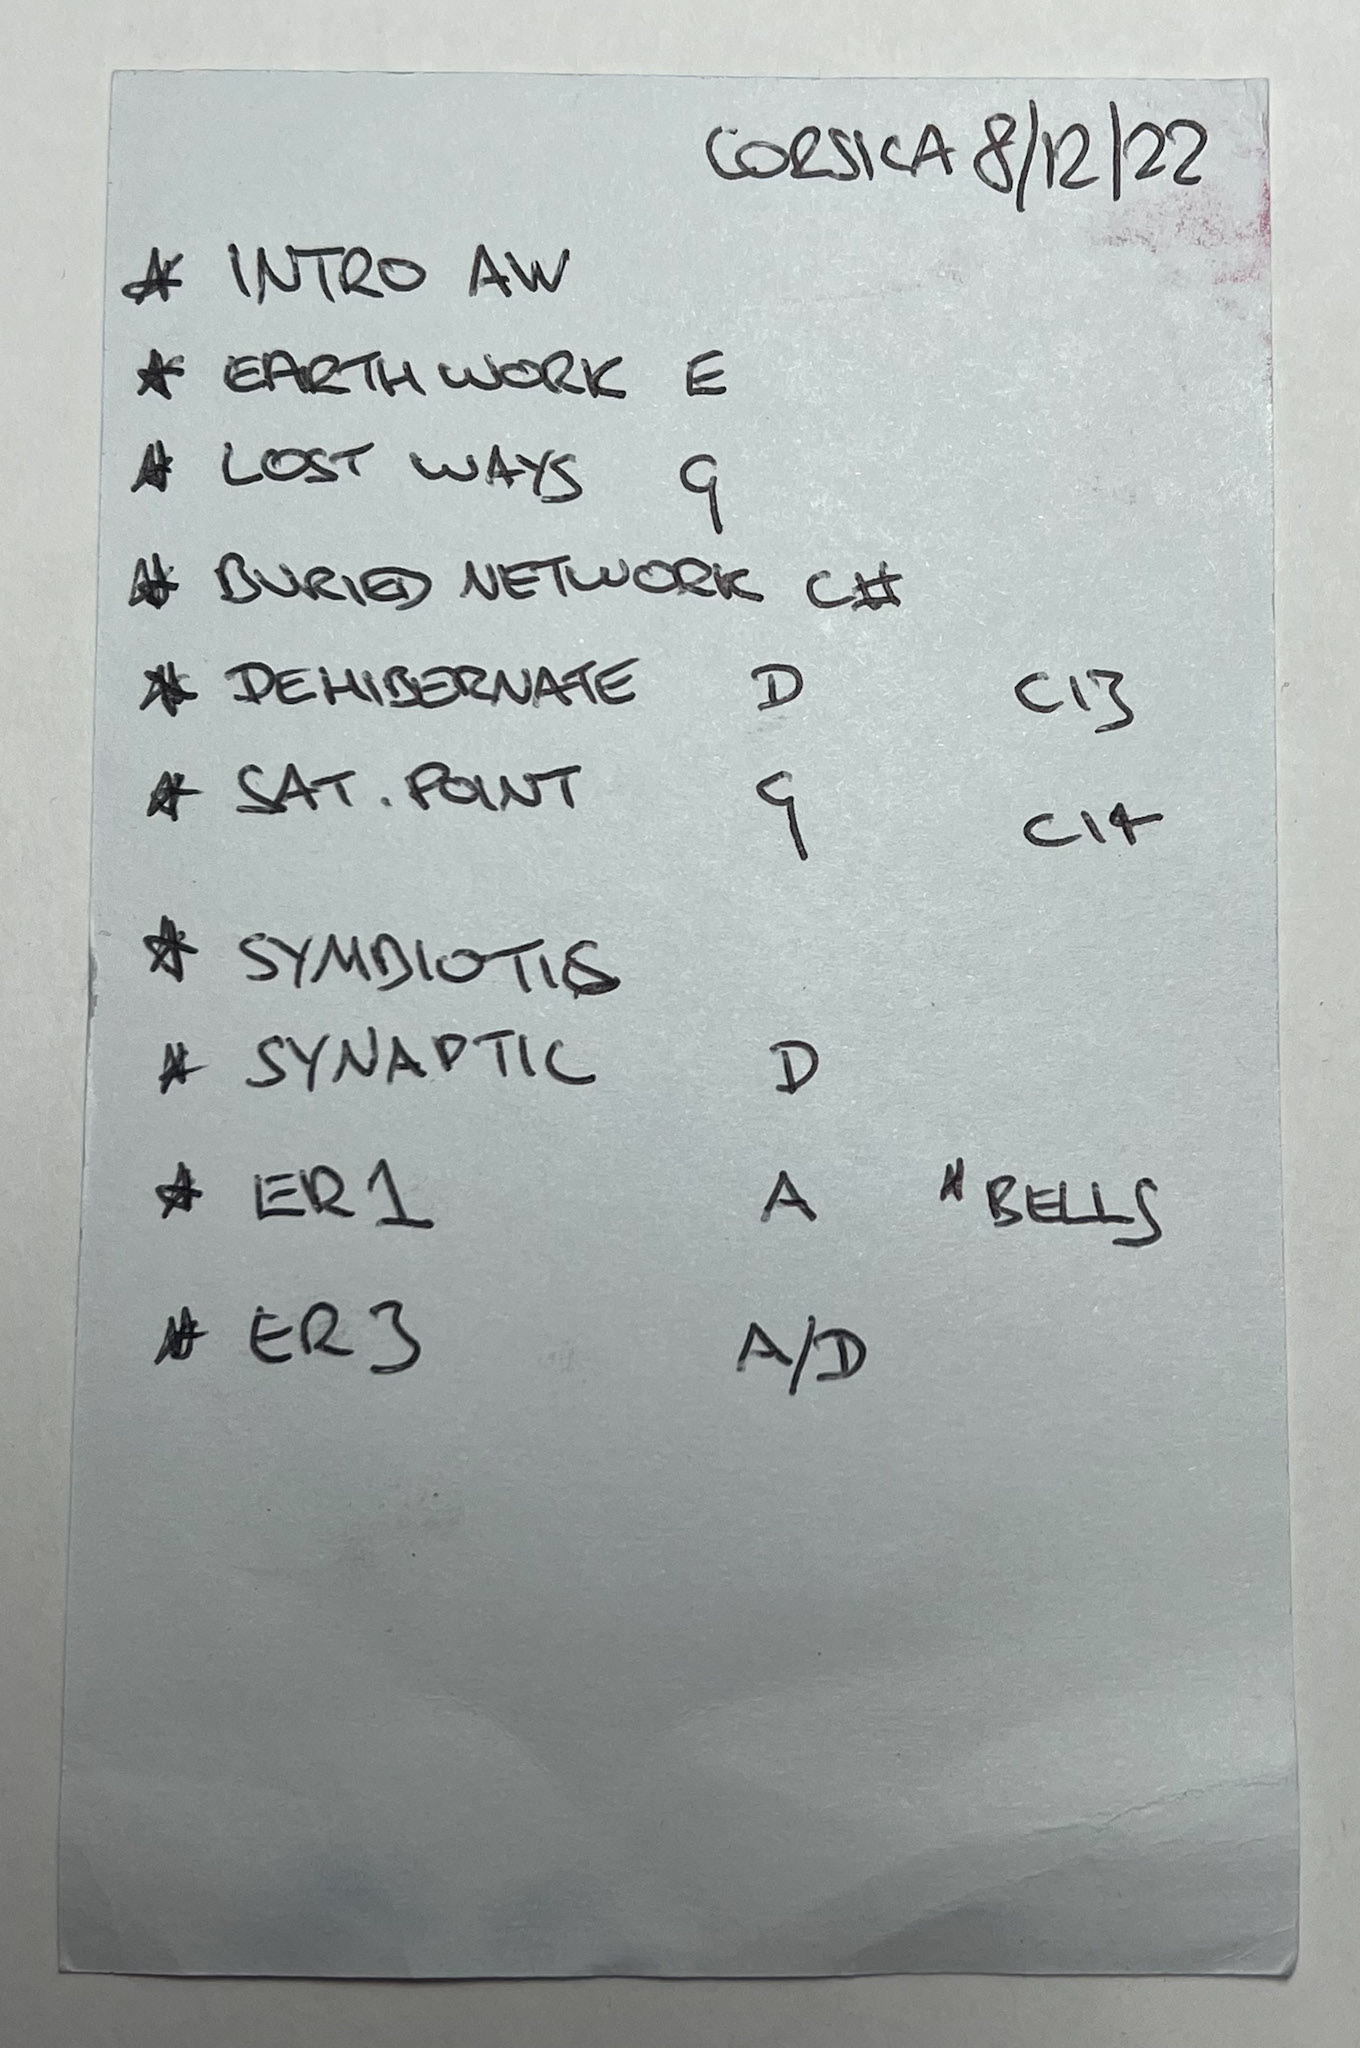 CORSICA 8/12/22
* INTRO AW
* EARTHWORK E
* LOST WAYS G
* BURIED NETWORK C#
* DEHIBERNATE D C13
* SAT. POINT G C14
* SYMBIOTIS
* SYNAPTIC D
* ER1 A "BELLS
* ER3 A/D